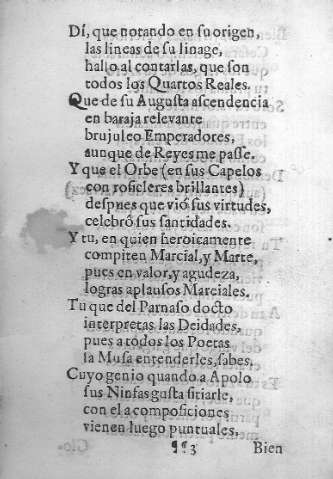 Dí, que notando en su origen,
las lineas de su linage,
hallo al contarlas, que son
todos los Quartos Reales.
Que de su Augusta ascendencia
en baraja relevante
brujuleo Emperadores,
aunque de Reyes me passe.
Y que el Orbe (en sus Capelos
con rosicleres brillantes)
despues que viò sus virtudes,
celebrò sus santidades.
Y tu, en quien heroicamente
compiten Marcial, y Marte,
pues en valor, y agudeza,
logras aplausos Marciales.
Tu que del Parnaso docto
interpretas las Deidades,
pues a todos los Poetas
la Musa entenderles, sabes.
Cuyo genio quando a Apolo
sus Ninfas gusta sitiarle,
con el a composiciones
vienen luego puntuales.
¶¶3 Bien